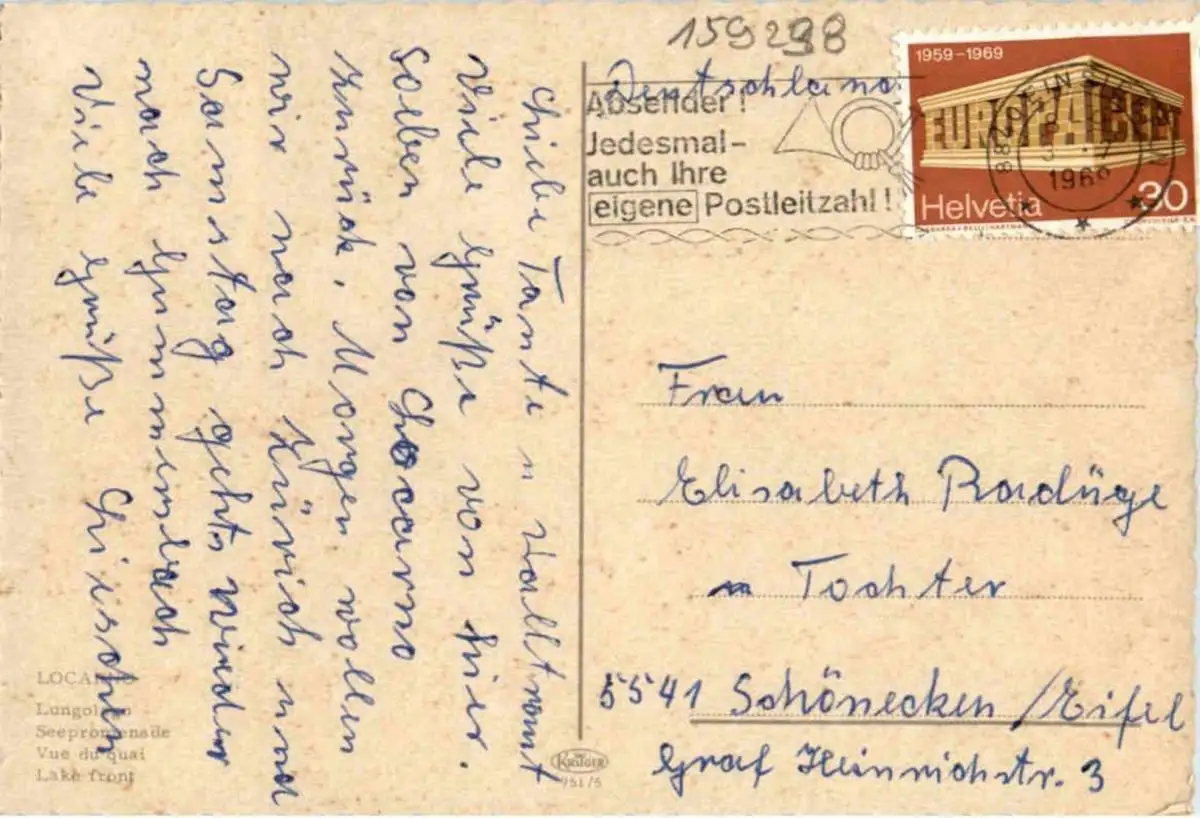 Liebe Tante u Waltraut
Viele Grüße von hier.
Soeben von Locarno
zurück. Morgen wollen
wir nach Zürich und
Samstag gehts wieder
nach Gummersbach
Viele Grüße
LOCARNO
Lungolago
Seepromenade
Vue du quai
Lake front
KRÜGER
951/5
159298
Deutschland
Absender!
Jedesmal-
auch Ihre
eigene Postleitzahl!
1959-1969
EUROPA CEPT
Helvetia 30
1969
Frau
Elisabeth Radüge
u Tochter
5541 Schönecken/Eifel
Graf Heinrichstr. 3